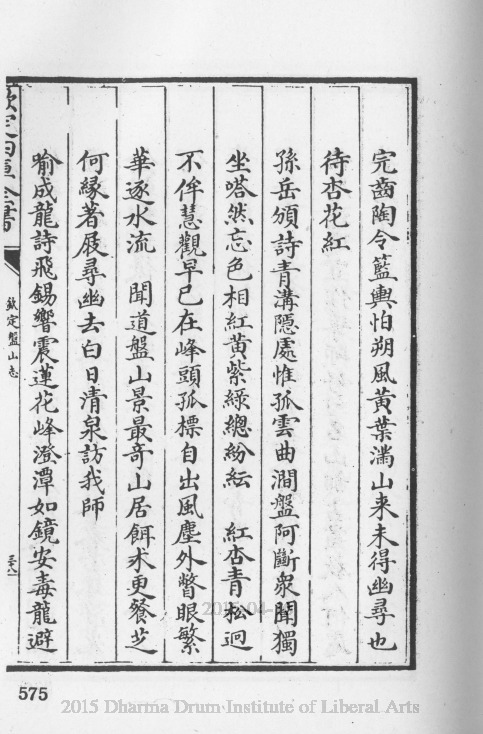 完齒陶令籃輿怕朔風黃葉滿山来未得幽尋也
待杏花紅
孫岳頒詩青溝隱處惟孤雲曲澗盤阿斷衆聞獨
坐嗒然忘色相紅黃紫緑總紛紜 紅杏青松迥
不侔慧觀早已在峰頭孤標自出風塵外瞥眼繁
華逐水流 聞道盤山景最竒山居餌术更餐芝
何縁著屐尋幽去白日清泉訪我師
喻成龍詩飛錫響震蓮花峰澄潭如鏡安毒龍避
欽定四庫全書
欽定盤山志
575
2015 Dharma Drum Institute of Liberal Arts